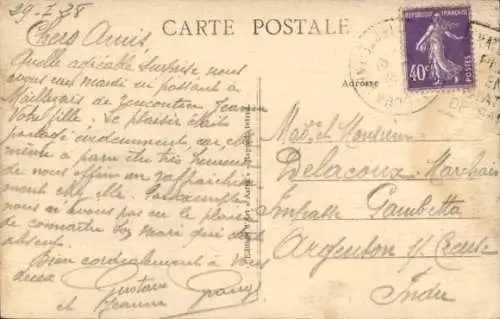 29-7-28
CARTE POSTALE
Chers Amis
Quelle agréable surprise nous
avons eue mardi en passant à
Maillezais de rencontrer Jeanne
Votre fille. Le plaisir était
partagé évidemment, car elle
même a paru être très heureuse
de nous offrir un rafraichisse
ment chez elle.
nous n'avons pas eu le plaisir
de connaître son Mari qui était
absent.
Bien cordialement à Vous
deux
Gustave
et Jeanne
Adresse
RÉPUBLIQUE FRANÇAISE
40c
POSTES
Mad. et Monsieur
Delacoux Marchand
Impasse Gambetta
Argenton s/ Creuse
Indre